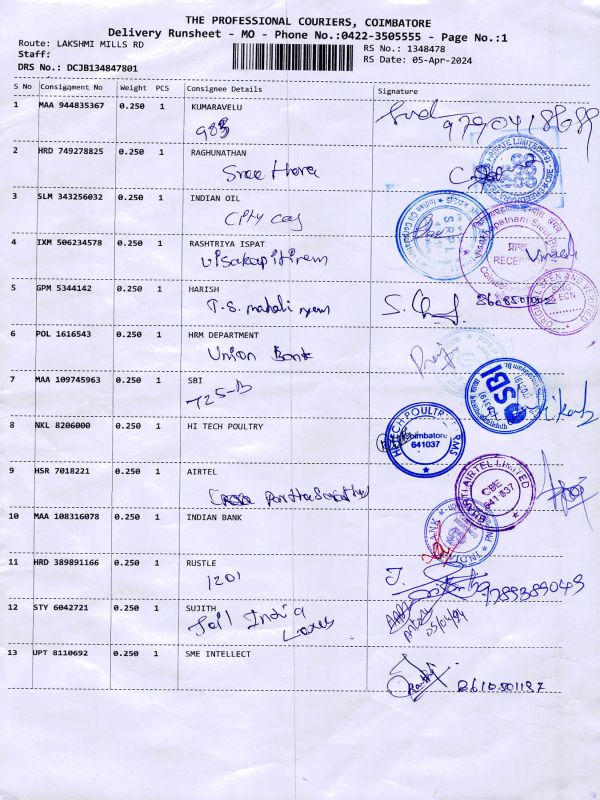 THE PROFESSIONAL COURIERS, COIMBATORE
Delivery Runsheet - MO - Phone No.:0422-3505555 - Page No.:1
Route: LAKSHMI MILLS RD RS No.: 1348478
Staff: RS Date: 05-Apr-2024
DRS No.: DCJB134847801
S No Consignment No Weight PCS Consignee Details Signature
1 MAA 944835367 0.250 1 KUMARAVELU
985
2 HRD 749278825 0.250 1 RAGHUNATHAN
Sree Hora
3 SLM 343256032 0.250 1 INDIAN OIL
City Gas
4 IXM 506234578 0.250 1 RASHTRIYA ISPAT
RECEIVED
5 GPM 5344142 0.250 1 HARISH
T.S. 
6 POL 1616543 0.250 1 HRM DEPARTMENT
Union Bank
7 MAA 109745963 0.250 1 SBI
725-B
SBI
8 NKL 8206000 0.250 1 HI TECH POULTRY
HITECH POULTRY FARMS
Coimbatore
641037
9 HSR 7018221 0.250 1 AIRTEL
BHARATI AIRTEL LIMITED
CBE
641 037
10 MAA 108316078 0.250 1 INDIAN BANK
11 HRD 389891166 0.250 1 RUSTLE
1201
12 STY 6042721 0.250 1 SUJITH
Jail India
05/04/24
13 UPT 8110692 0.250 1 SME INTELLECT